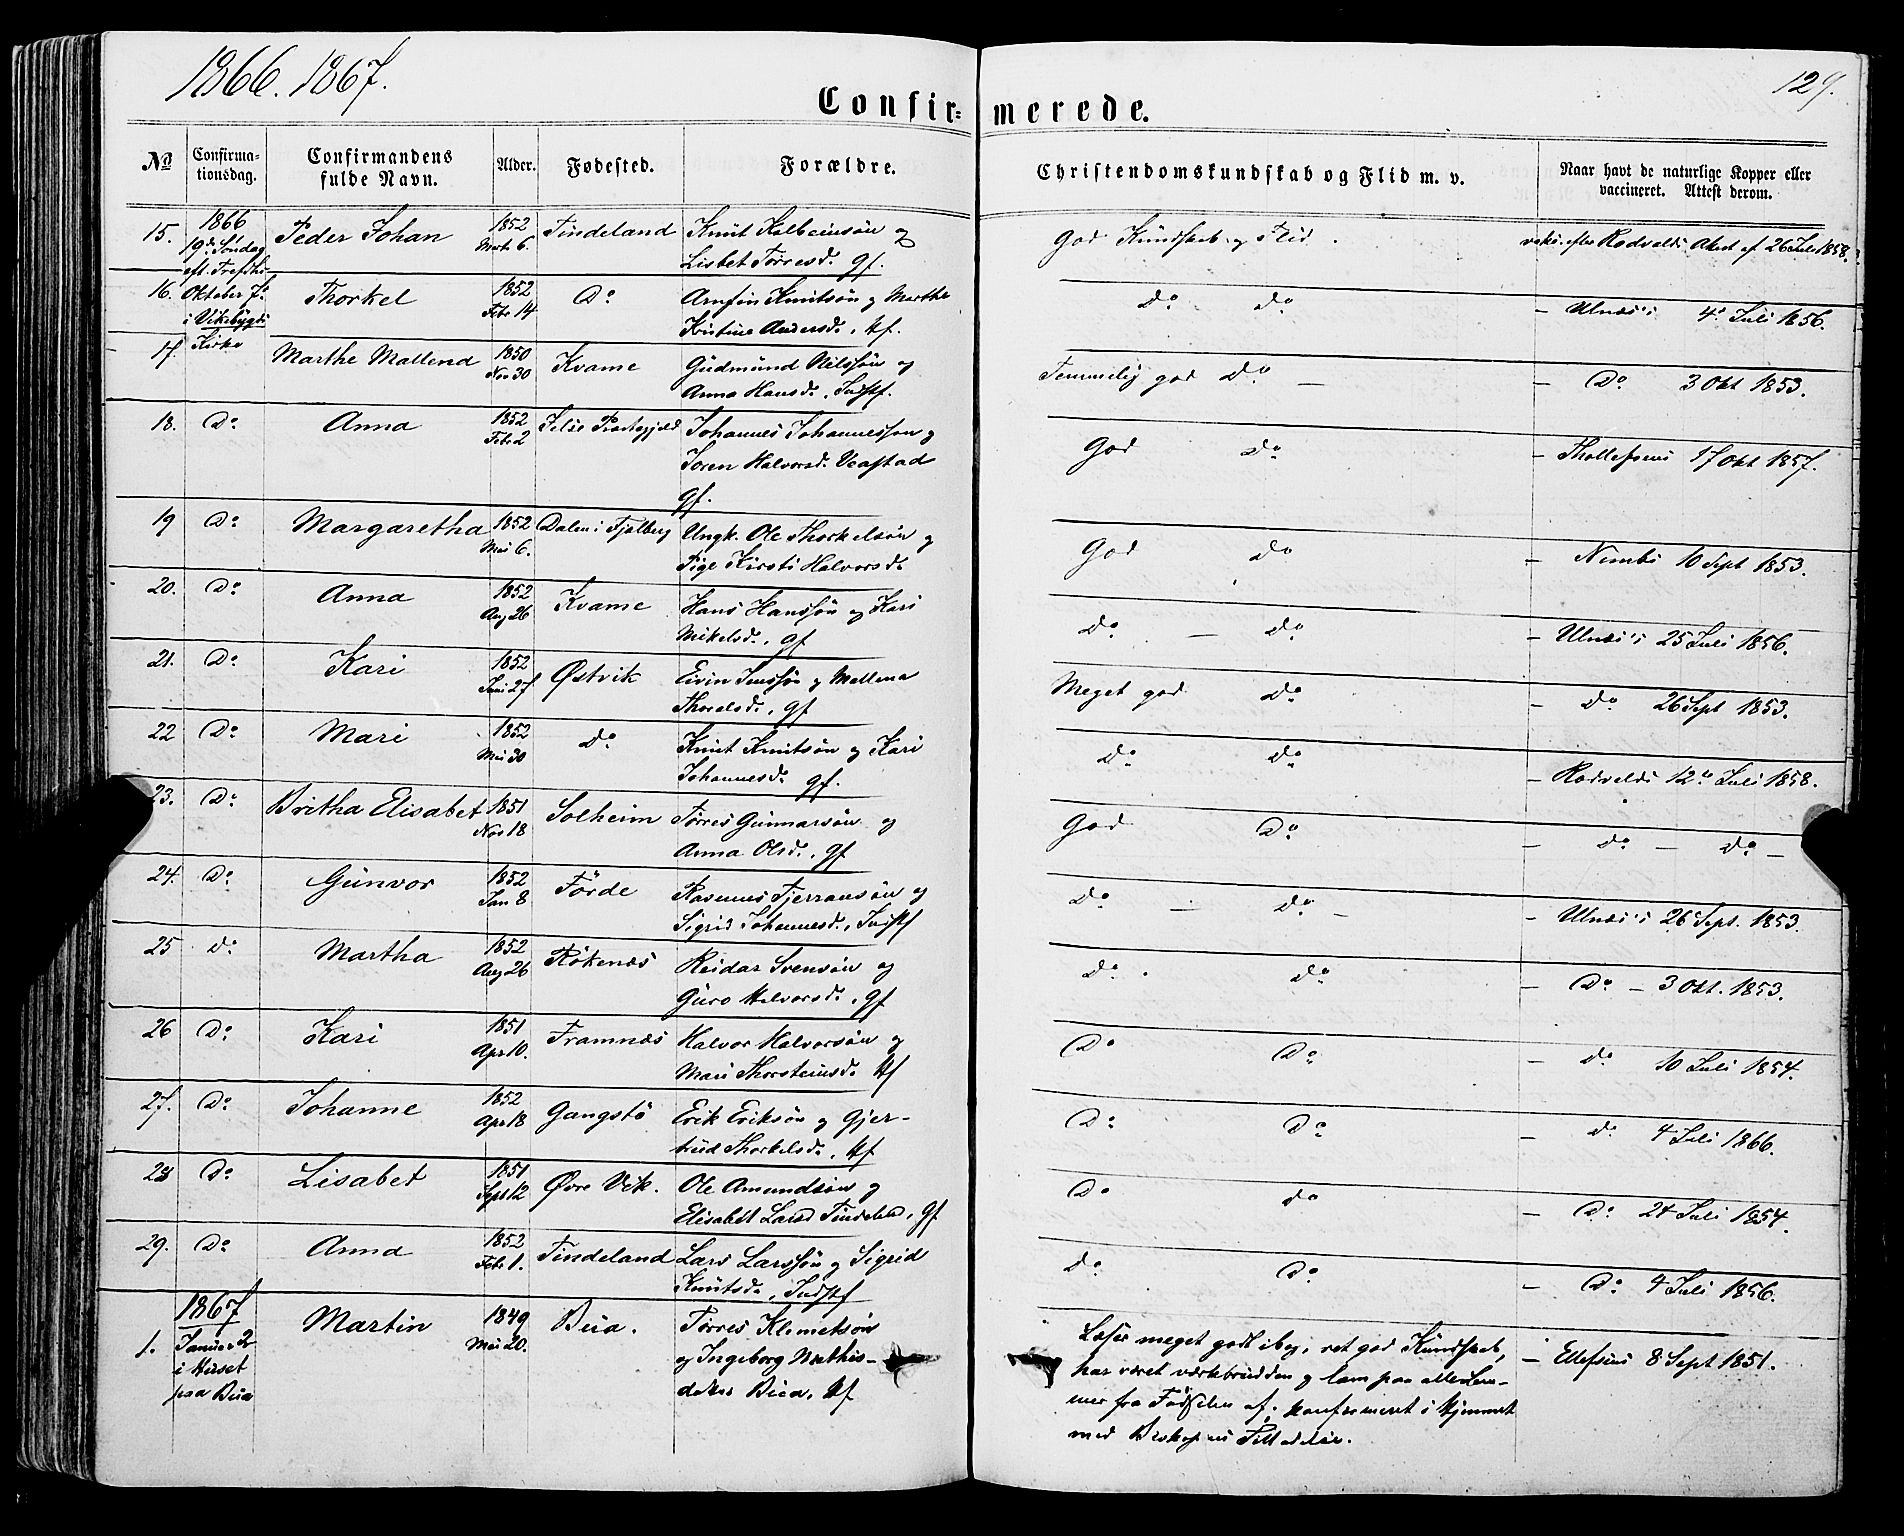 1866. 1867.
129.
Confir= merede.
No
Confirma-
tionsdag.
Confirmandens
fulde Navn.
Alder.
Fødested.
Forældre.
Christendomskundskab og Flid m. v.
Naar havt de naturlige Kopper eller
vaccineret. Attest derom.
15. 1866 Peder Johan 1852 Tindeland Knut Kolbeinsøn og God Kundskab og Flid. Rødvelds Attest af 26 Juli 1858.
19de Søndag
Lisbet Torresd. gf.
16. Oktober 7de Thorkel 1852 Do Arnfin Knutsøn og Marthe Do Do Ulnæs's 4de Juli 1856.
i Vikebygds Febr 14
Kirke
Kristine Andersd.
17. Marthe Mallena 1850 Kvame Gudmund Nilssøn og Temmelig god Do — — Do 3 Okt 1853.
Nov 30
Anna Hansd., Indstf.
18. Do Anna 1852 Johannes Johannesson og God Do — Thollefsens 17 Okt 1857.
Febr 2
Halvorsd.
gf.
19 Do Margaretha 1852 Dalen i Fjelberg Ungk. Ole Thorkelsøn og God Do — 10 Sept 1853.
Mai 6.
Pige Kirsti Halvorsd.
20. Do Anna 1852 Kvame Hans Hanssøn og Kari Do — Do — Ulnæs's 25 Juli 1856.
Aug 26
Mikelsd., gf
21. Do Kari 1852 Østvik Eivin Jenssøn og Mallena Meget god Do — Do 26 Sept 1853.
Juni 27
gf
22 Do Mari 1852 Do Knut Knutsøn og Kari Do Do — Rødvelds 12te Juli 1858.
Mai 30
Johannesd. gf.
23. Do Britha Elisabet 1851 Solheim Torres Gunnarsøn og God Do — Do — Do —
Nov 18
Anna Olsd., gf
24. Do Gunvor 1852 Förde Rasmus Fjerransøn og Do — Do — — Ulnæs's 26 Sept. 1853.
Jan 8
Sigrid Johannesd., Indstf
25 Do Martha 1852 Rökenæs Reidar Svensøn og Do Do — Do — 3 Okt. 1853.
Aug 26
Guro Halvorsd., gf
26 Do Kari 1851 Framnæs Halvor Halvorsøn og Do Do — Do 10 Juli 1854.
Apr 10.
Mari Thorsteinsd.
27. Do Johanne 1852 Gangstö Erik Eriksøn og Gjer- Do Do — Do 4 Juli 1866.
Apr 18
trud Thorkelsd.
28 Do Lisabet 1851 Øvre Vik. Ole Amundsøn og Do Do — Do 24 Juli 1854.
Sept 12
Elisabet Larsd Tindeland, gf
29. Do Anna 1852 Tindeland Lars Larssøn og Sigrid Do Do — Do 4 Juli 1856.
Febr 1.
Knutsd., Indstf
1. 1867 Martin 1849 Bua. Torres Klemetsøn
Januar 2 Mai 20. og Ingeborg Mathis-
i Huset datter Bua,
paa Bua
Læser meget godt i bog, ret god Kundskab,
har været værkbrudden og lam paa alle Lem-
mer fra Fødselen af; konfirmeret i Hjemmet
med Biskopens Tilladelse.
— Ellefsens 8 Sept 1851.